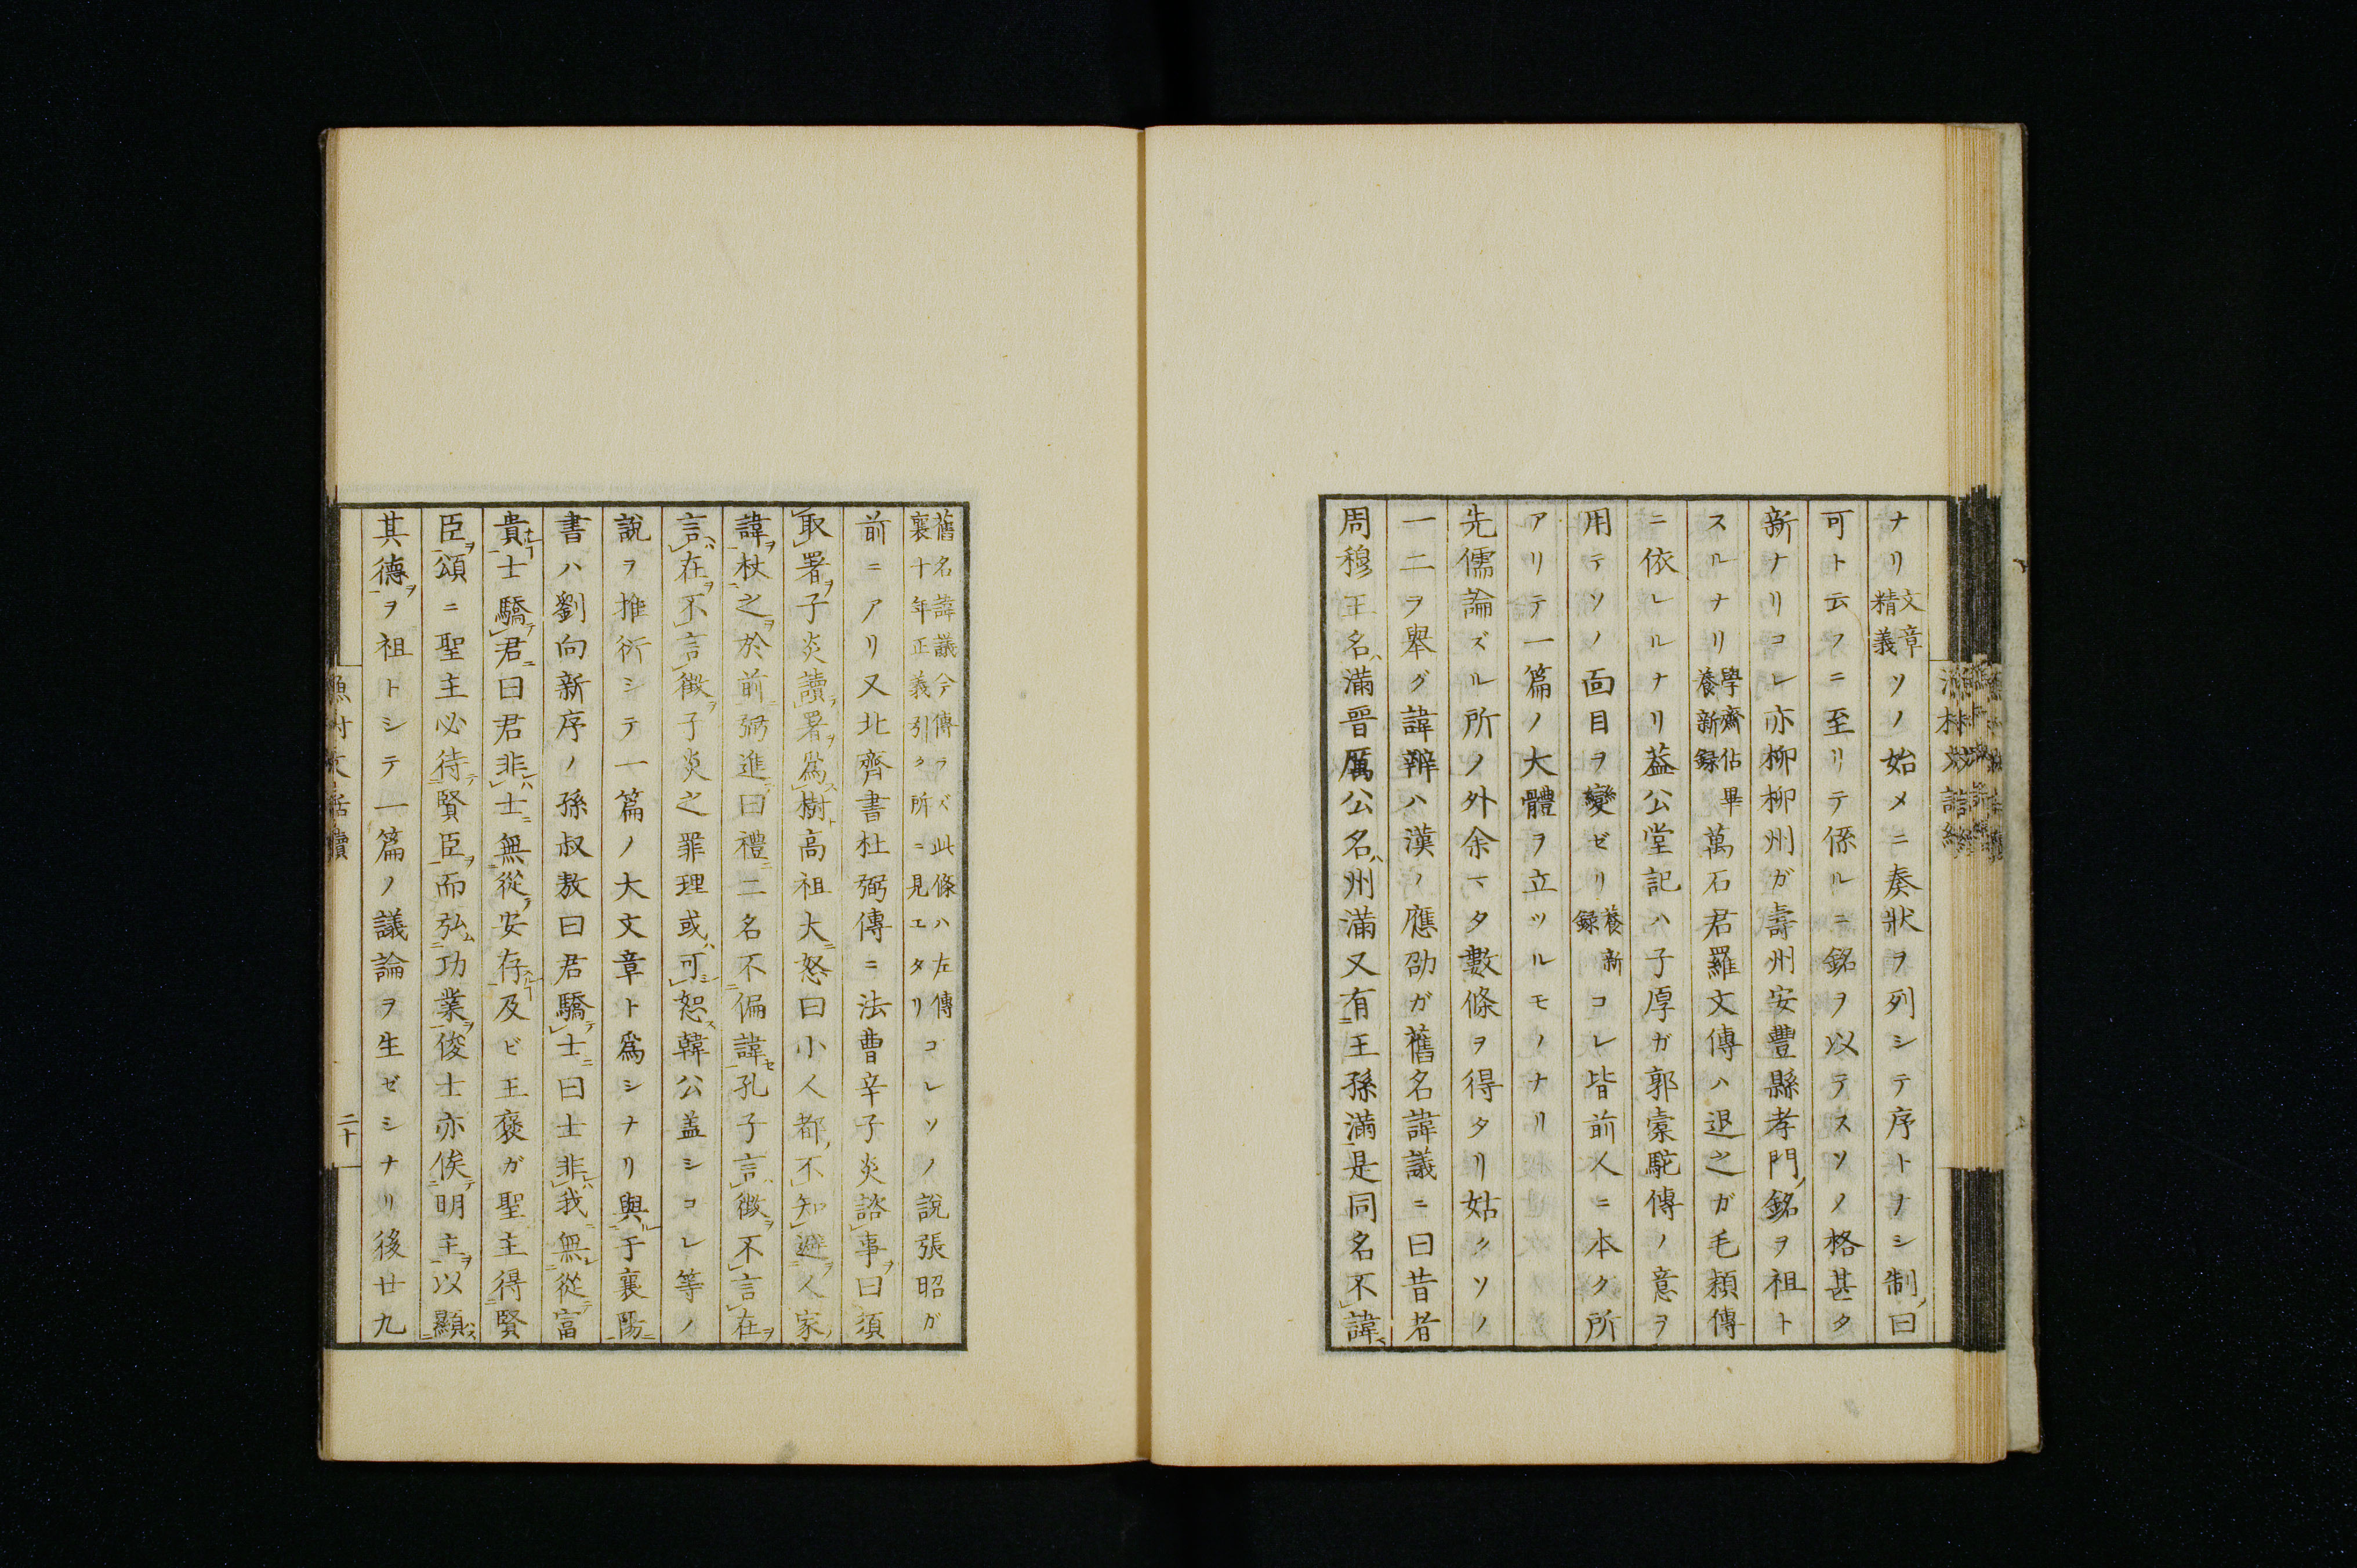 ナリ文章精義ソノ始メニ奏狀ヲ列シテ序トナシ制曰
可ト云フニ至リテ係ルニ銘ヲ以テスソノ格甚タ
新ナリコレ亦柳柳州ガ壽州安豐縣孝門銘ヲ祖ト
スルナリ學齋佔畢養新録萬石君羅文傳ハ退之ガ毛穎傳
ニ依レルナリ葢公堂記ハ子厚ガ郭橐駝傳ノ意ヲ
用テソノ面目ヲ變ゼリ養新録コレ皆前人ニ本ク所
アリテ一篇ノ大體ヲ立ツルモノナリ
先儒論ズル所ノ外余マタ數條ヲ得タリ姑クソノ
一二ヲ舉グ諱辨ハ漢ノ應劭ガ舊名諱議ニ曰昔者
周穆王名ハ滿晉厲公名ハ州滿又有王孫滿是同名不諱
舊名諱議今傳ラズ此條ハ左傳襄十年正義引ク所ニ見エタリコレソノ說張昭ガ
前ニアリ又北齊書杜弼傳ニ法曹辛子炎諮事曰須
取署子炎讀署爲樹高祖大怒曰小人都不知避人家
諱杖之於前弼進曰禮二名不偏諱孔子言徵不言在
言在不言徵子炎之罪理或可恕韓公盖シコレ等ノ
說ヲ推衍シテ一篇ノ大文章ト爲シナリ與于襄陽
書ハ劉向新序ノ孫叔敖曰君驕士曰士非我無從富
貴士驕君曰君非士無從安存及ビ王褒ガ聖主得賢
臣頌ニ聖主必待賢臣而弘功業俊士亦俟明主以顯
其德ヲ祖トシテ一篇ノ議論ヲ生ゼシナリ後廿九
二十